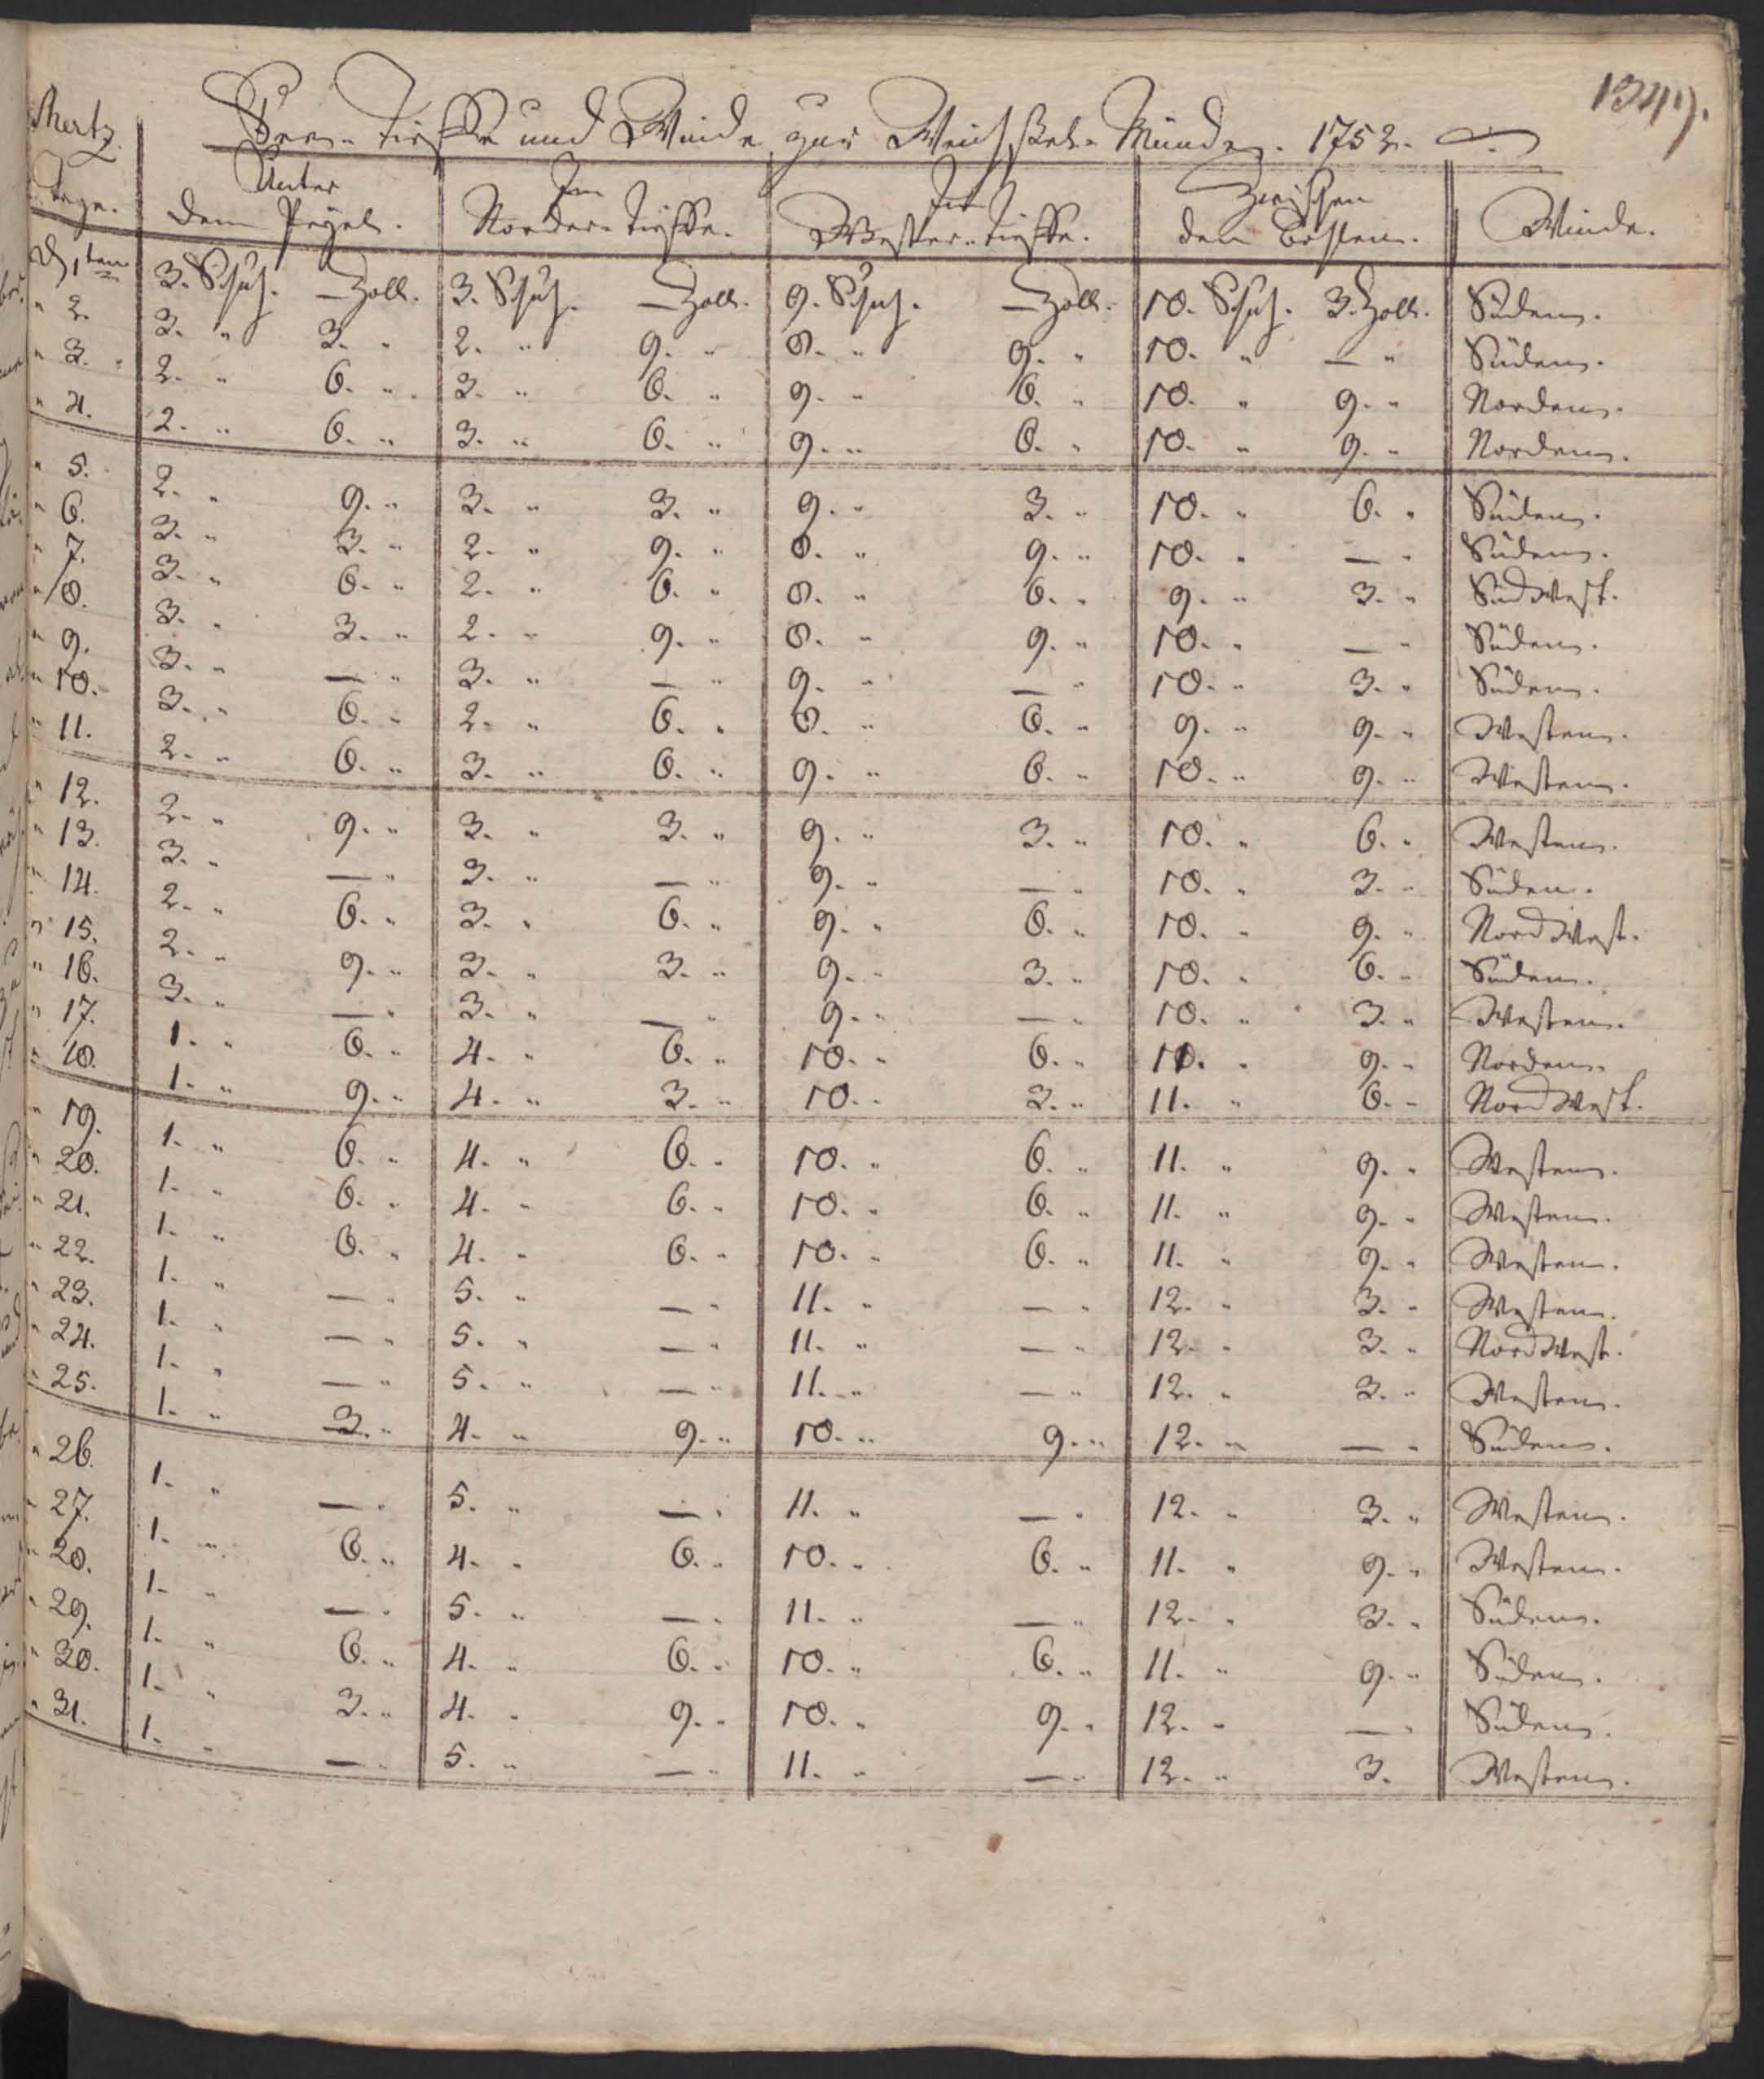 1349.
Mertz. See-Tieffe und Winde zur Weichssel-Münde. 1753.
Tage. Unter dem Pegel. Im Norder-Tieffe. Im Wester-Tieffe. Zwischen den Winde.
D 1ten 3. Schuh. — Zoll. 3. Schuh. — Zoll. 9. Schuh. — Zoll. 10. Schuh. 3. Zoll. Süden.
" 2. 3. " 3. " 2. " 9. " 8. " 9. " 10. " — " Süden.
" 3. 2. " 6. " 3. " 6. " 9. " 6. " 10. " 9. " Norden.
" 4. 2. " 6. " 3. " 6. " 9. " 6. " 10. " 9. " Norden.
" 5. 2. " 9. " 3. " 3. " 9. " 3. " 10. " 6. " Süden.
" 6. 3. " 3. " 2. " 9. " 8. " 9. " 10. " — " Süden.
" 7. 3. " 6. " 2. " 6. " 8. " 6. " 9. " 3. " SüdWest.
" 8. 3. " 3. " 2. " 9. " 8. " 9. " 10. " — " Süden.
" 9. 3. " — " 3. " — " 9. " — " 10. " 3. " Süden.
" 10. 3. " 6. " 2. " 6. " 8. " 6. " 9. " 9. " Westen.
" 11. 2. " 6. " 3. " 6. " 9. " 6. " 10. " 9. " Westen.
" 12. 2. " 9. " 3. " 3. " 9. " 3. " 10. " 6. " Westen.
" 13. 3. " — " 3. " — " 9. " — " 10. " 3. " Süden.
" 14. 2. " 6. " 3. " 6. " 9. " 6. " 10. " 9. " NordWest.
" 15. 2. " 9. " 3. " 3. " 9. " 3. " 10. " 6. " Süden.
" 16. 3. " — " 3. " — " 9. " — " 10. " 3. " Westen.
" 17. 1. " 6. " 4. " 6. " 10. " 6. " 11. " 9. " Norden.
" 18. 1. " 9. " 4. " 3. " 10. " 3. " 11. " 6. " NordWest.
" 19. 1. " 6. " 4. " 6. " 10. " 6. " 11. " 9. " Westen.
" 20. 1. " 6. " 4. " 6. " 10. " 6. " 11. " 9. " Westen.
" 21. 1. " 6. " 4. " 6. " 10. " 6. " 11. " 9. " Westen.
" 22. 1. " — " 5. " — " 11. " — " 12. " 3. " Westen.
" 23. 1. " — " 5. " — " 11. " — " 12. " 3. " NordWest.
" 24. 1. " — " 5. " — " 11. " — " 12. " 3. " Westen.
" 25. 1. " 3. " 4. " 9. " 10. " 9. " 12. " — " Süden.
" 26. 1. " — " 5. " — " 11. " — " 12. " 3. " Westen.
" 27. 1. " 6. " 4. " 6. " 10. " 6. " 11. " 9. " Westen.
" 28. 1. " — " 5. " — " 11. " — " 12. " 3. " Süden.
" 29. 1. " 6. " 4. " 6. " 10. " 6. " 11. " 9. " Süden.
" 30. 1. " 3. " 4. " 9. " 10. " 9. " 12. " — " Süden.
" 31. 1. " — " 5. " — " 11. " — " 12. " 3. Westen.